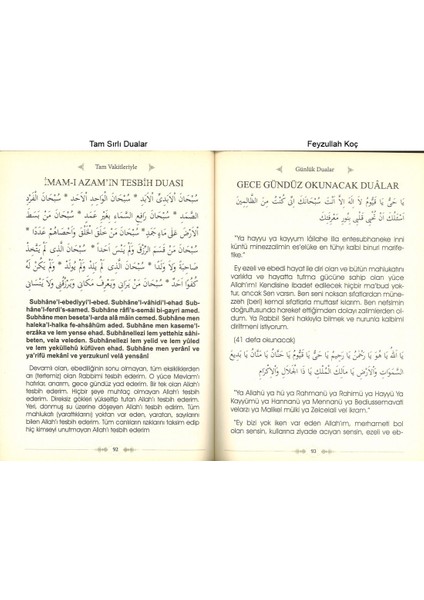 Tam Sırlı Dualar
Tam Vakitleriyle
İMAM-I AZAM'IN TESBİH DUASI
سُبْحَانَ الْاَبَدِىِّ الْاَبَدِ * سُبْحَانَ الْوَاحِدِ الْاَحَدِ * سُبْحَانَ الْفَرْدِ
الصَّمَدِ * سُبْحَانَ رَافِعِ السَّمَاءِ بِغَيْرِ عَمَدٍ * سُبْحَانَ مَنْ بَسَطَ
الْاَرْضَ عَلٰى مَاءٍ جَمَدٍ * سُبْحَانَ مَنْ خَلَقَ الْخَلْقَ وَاَحْصَاهُمْ عَدَدًا *
سُبْحَانَ مَنْ قَسَمَ الرِّزْقَ وَلَمْ يَنْسَ اَحَدًا * سُبْحَانَ الَّذِى لَمْ يَتَّخِذْ
صَاحِبَةً وَلَا وَلَدًا * سُبْحَانَ الَّذِى لَمْ يَلِدْ وَلَمْ يُولَدْ * وَلَمْ يَكُنْ لَهُ
كُفُوًا اَحَدٌ * سُبْحَانَ مَنْ يَرَانِى وَيَعْرِفُ مَكَانِى وَيَرْزُقُنِى وَلَا يَنْسَانِى
Subhâne'l-ebediyyi'l-ebed. Subhâne'l-vâhidi'l-ehad Sub-
hâne'l-ferdi's-samed. Subhâne râfii's-semâi bi-gayri amed.
Subhâne men beseta'l-arda alâ mâin cemed. Subhâne men
haleka'l-halka fe-ahsâhüm aded. Subhâne men kaseme'l-
erzâka ve lem yense ehad. Subhânellezî lem yettehiz sâhi-
beten, vela veleden. Subhânellezi lem yelid ve lem yûled
ve lem yekûllehû küfüven ehad. Subhâne men yerânî ve
ya'rifü mekânî ve yerzukunî velâ yensânî
Devamlı olan, ebediliğinin sonu olmayan, tüm eksikliklerden
arı (tertemiz) olan Rabbimi tesbih ederim. O yüce Mevlam'ı
hatırlar, anarım, gece gündüz yad ederim. Bir tek olan Allah'ı
tesbih ederim. Hiçbir şeye muhtaç olmayan Allah'ı tesbih
ederim. Direksiz gökleri yükseltip tutan Allah'ı tesbih ederim.
Yeri, donmuş su üzerine döşeyen Allah'ı tesbih ederim. Tüm
mahlukatı (yaratıkların) yoktan var eden, yaratan, sayılarını
bilen Allah'ı tesbih ederim. Tüm canlıların rızıklarını taksim edip
hiç kimseyi unutmayan Allah'ı tesbih ederim
92
Feyzullah Koç
Günlük Dualar
GECE GÜNDÜZ OKUNACAK DUÂLAR
يَا حَىُّ يَا قَيُّومُ لَا اِلٰهَ اِلَّا اَنْتَ سُبْحَانَكَ اِنِّى كُنْتُ مِنَ الظَّالِمِينَ
اَسْئَلُكَ اَنْ تُحْيِىَ قَلْبِى بِنُورِ مَعْرِفَتِكَ
"Ya hayyu ya kayyum lâilahe illa entesubhaneke inni
küntü minezzalimin es'elüke en tuhyi kalbi binuri marife-
tike."
Ey ezeli ve ebedi hayat ile diri olan ve bütün mahlukatını
varlıkta tutup yaşatma gücüne sahip olan yüce
Allah'ım! Kendisine ibadet edilecek hiçbir ma'bud yok-
tur, ancak Sen varsın. Ben seni noksan sıfatlardan müne-
zzeh (beri) kemal sıfatlarınla muttasıf bilirim. Ben nefsimin
doğrultusunda hareket ettiğimden dolayı zalimlerden ol-
dum. Ya Rabbi! Seni hakkıyla bilmek ve nurunla kalbimi
diriltmeni istiyorum.
(41 defa okunacak)
يَا اَللّٰهُ يَا هُوَ يَا رَحْمٰنُ يَا رَحِيمُ يَا حَىُّ يَا قَيُّومُ يَا حَنَّانُ يَا مَنَّانُ يَا بَدِيعَ
السَّمٰوَاتِ وَالْاَرْضِ يَا مَالِكَ الْمُلْكِ يَا ذَا الْجَلَالِ وَالْاِكْرَامِ
"Ya Allahü ya hü ya Rahmanü ya Rahimü ya Hayyü Ya
Kayyümü ya Hannanü ya Mennanü ya Bedüssemavati
velarzı ya Malikel mülki ya Zelcelali vel ikram."
"Ey bizi yok iken var eden Allah'ım, merhameti bol
olan sensin, kullarına ziyade acıyan sensin, ezeli ve eb-
93